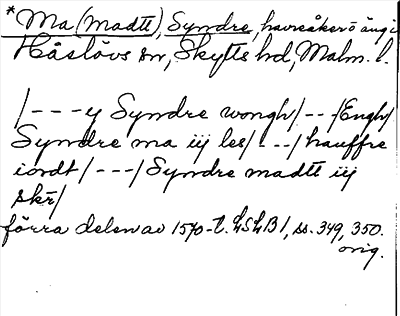 *Ma (Madtt), Syndre, havreåker o äng i
Håslövs sn, Skytts hd, Malm. l.
/---y Syndre wongh/--/Engh/
Syndre ma iij les/---/hauffre
iordt/---/Syndre madtt iij
skr/
förra delen av 1570-t. LSLB1, ss. 349, 350.
orig.